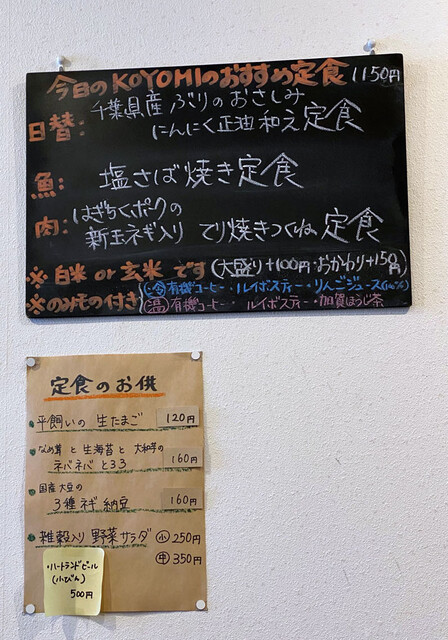 今日のKOYOMIのおすすめ定食 1150円
日替: 千葉県産 ぶりのおさしみ
にんにく正油和え定食
魚: 塩さば焼き定食
肉: はぎちくポークの
新玉ネギ入り てり焼きつくね定食
※白米or玄米です(大盛り+100円・おかわり+150円)
※のみもの付き (冷)有機コーヒー・ルイボスティー・りんごジュース(100%)
(温)有機コーヒー・ルイボスティー・加賀ほうじ茶
定食のお供
平飼いの 生たまご 120円
なめ茸と生海苔と大和芋の
ネバネバとろろ 160円
国産大豆の
3種ネギ納豆 160円
雑穀入り野菜サラダ 小 250円
中 350円
・ハートランドビール
(小びん)
500円